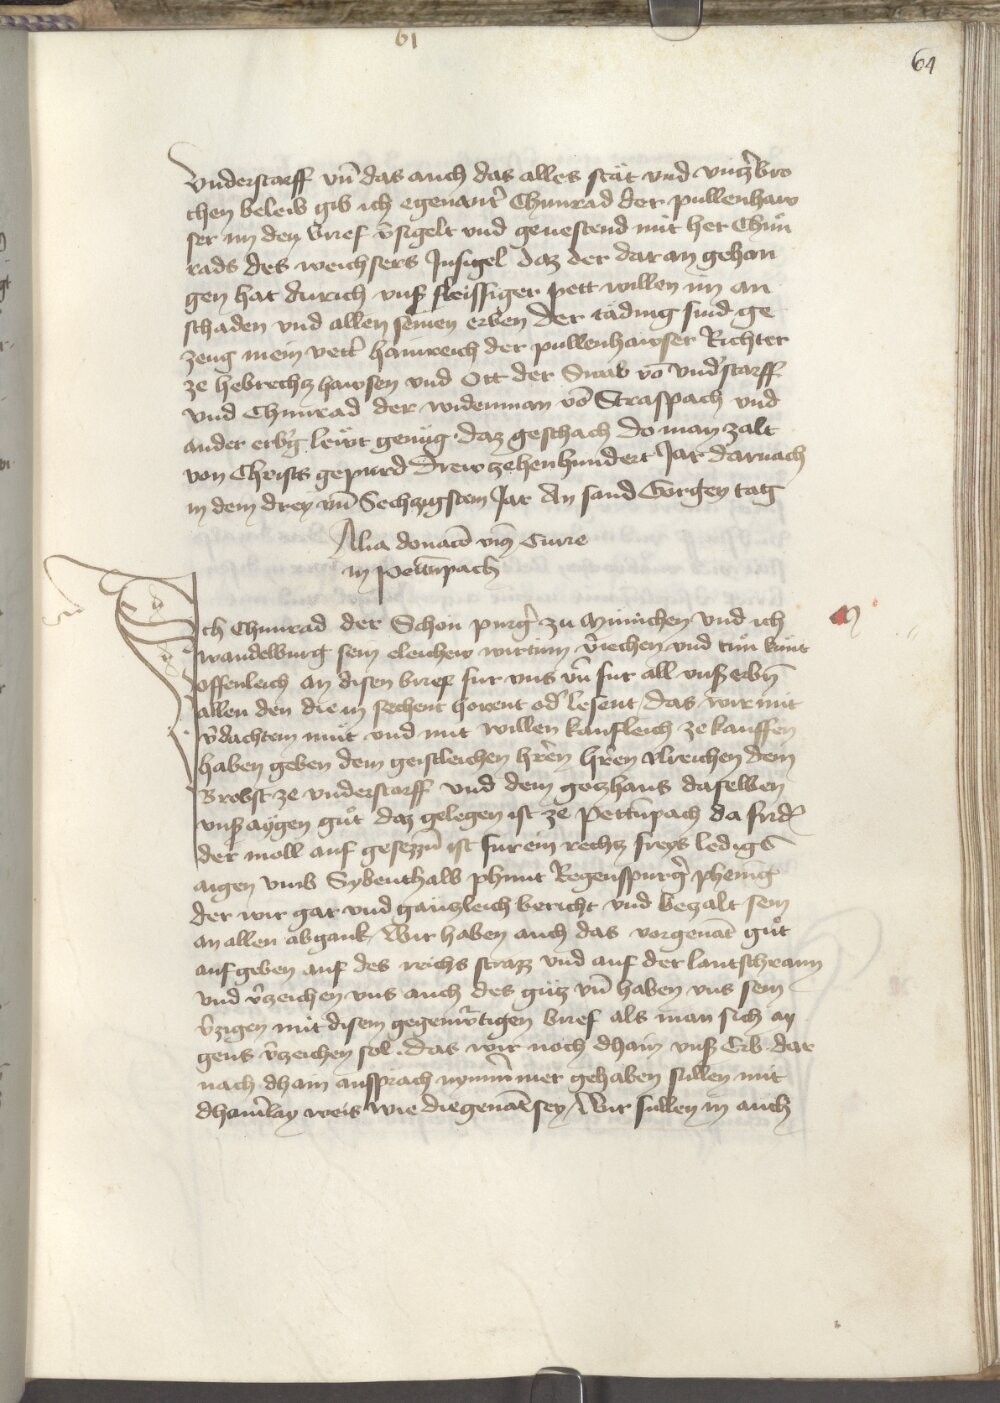 61
64
vnderstorff vnd̄ das auch das alles stät vnd vnzẻbro
chen beleib gib ich egenantẻ Chunrad der pullenhaw
ser in den brief v̉sigelt vnd geuestend mit her Chůn
rads des weichsers Insigel daz der daran gehan
gen hat durich vnsẻ fleissiger pett willen im an
schaden vnd allen seinen erben Der täding sind ge
zeug mein vettẻ hainreich der pullenhawser Richter
ze hebrechtzhawsen vnd Ott der Swab vō vndẻstorff
vnd Chunrad der widenman vō Straspach vnd
ander erbg̉ lewt genůg. daz geschach do man zalt
von Christs gepurd Drewzehenhundert Jar darnach
in dem drey vn̄ Sechzigstem Jar An sand Görgen tag
Alia donacō vni9 Curie
in petn̄pach
Ich Chunrad der Schön purgẻ zu München vnd ich
wandelburg sein eleichew wirtinn v̉iechen vnd tůn kunt
offenleich an disen brief fur vns vn̄ fur all vnsẻ erbn̄
allen den die in sechent hörent odẻ lesent / das wir mit
v̉dachtem můt vnd mit willen kaufleich ze kauffen
haben geben dem geistleichen hrẻn hrẻn Vlreichen dem
Brobst ze vnderstorff vnd dem gotzhaus daselben
vnsẻ aygen gůt daz gelegen ist ze Pettn̄pach da frid̉
der moll auf gesezzn̄ ist fur ein rechtz freys ledigs
aigen vmb Sybenthalb phunt Regenspurgẻ phenig̉
der wir gar vnd gäntzleich bericht vnd bezalt sein
an allen abgank / Wir haben auch das vorgenāt gůt
aufgeben auf des reichs strazz vnd auf der lantschrann
vnd v̉zeichen vns auch des gůtz vn̄ haben vns sein
v̉zigen mit disem gegenwr̉tigen brief als man sich ay
gens v̉zeichen sol. das wir noch dhain vnsẻ Erb dar
nach dhain ansprach nymmmer gehaben sullen mit
dhainẻlay weis wie die genāt sey / Wir sullen in auch